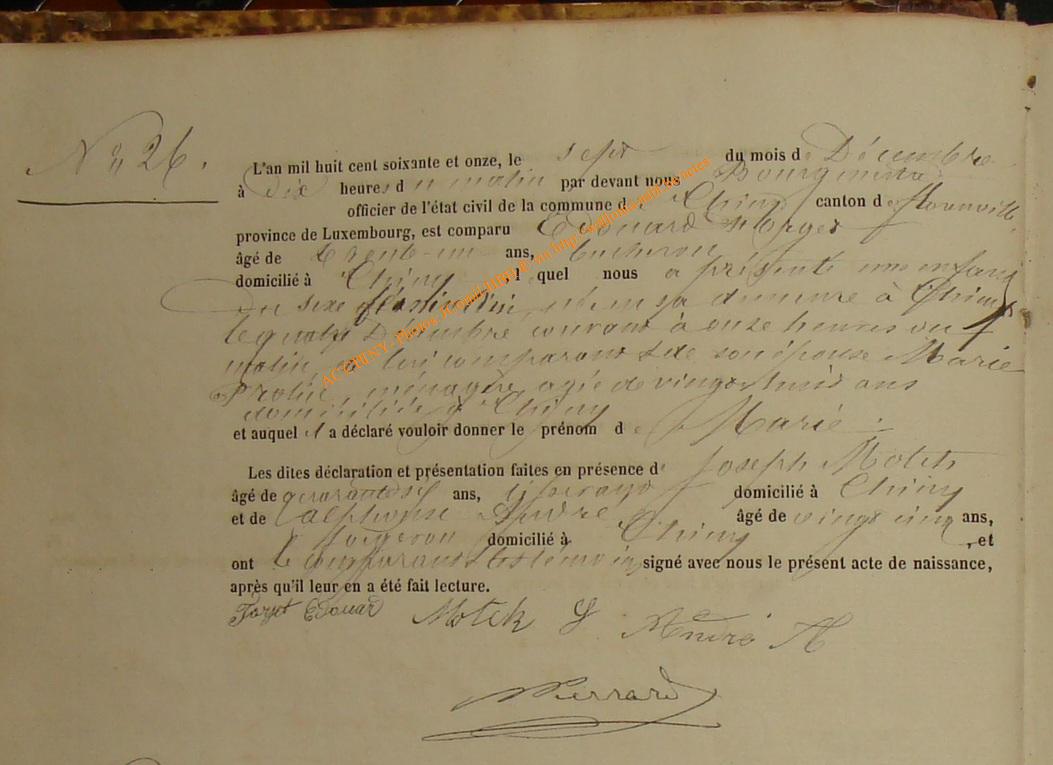 N° 26.
L'an mil huit cent soixante et onze, le sept du mois de Décembre
à dix heures du matin par devant nous Bourgmestre
officier de l'état civil de la commune de Chiny canton de Florenville
province de Luxembourg, est comparu Edouard
âgé de trente-un ans, bucheron
domicilié à Chiny, lequel nous a présenté une enfant
du sexe féminin, né en sa demeure à Chiny
le quatre Décembre courant à onze heures du
matin, de lui comparant et de son épouse Marie
ménagère, agée de vingt huit ans
domiciliée à Chiny
et auquel il a déclaré vouloir donner le prénom de Marie
Les dites déclaration et présentation faites en présence de Joseph Motch
âgé de ans, domicilié à Chiny
et de alphonse André âgé de vingt cinq ans,
forgeron domicilié à Chiny, et
ont le comparant et les témoins signé avec nous le présent acte de naissance,
après qu'il leur en a été fait lecture.
Edouard Motch J André A
Pierrard